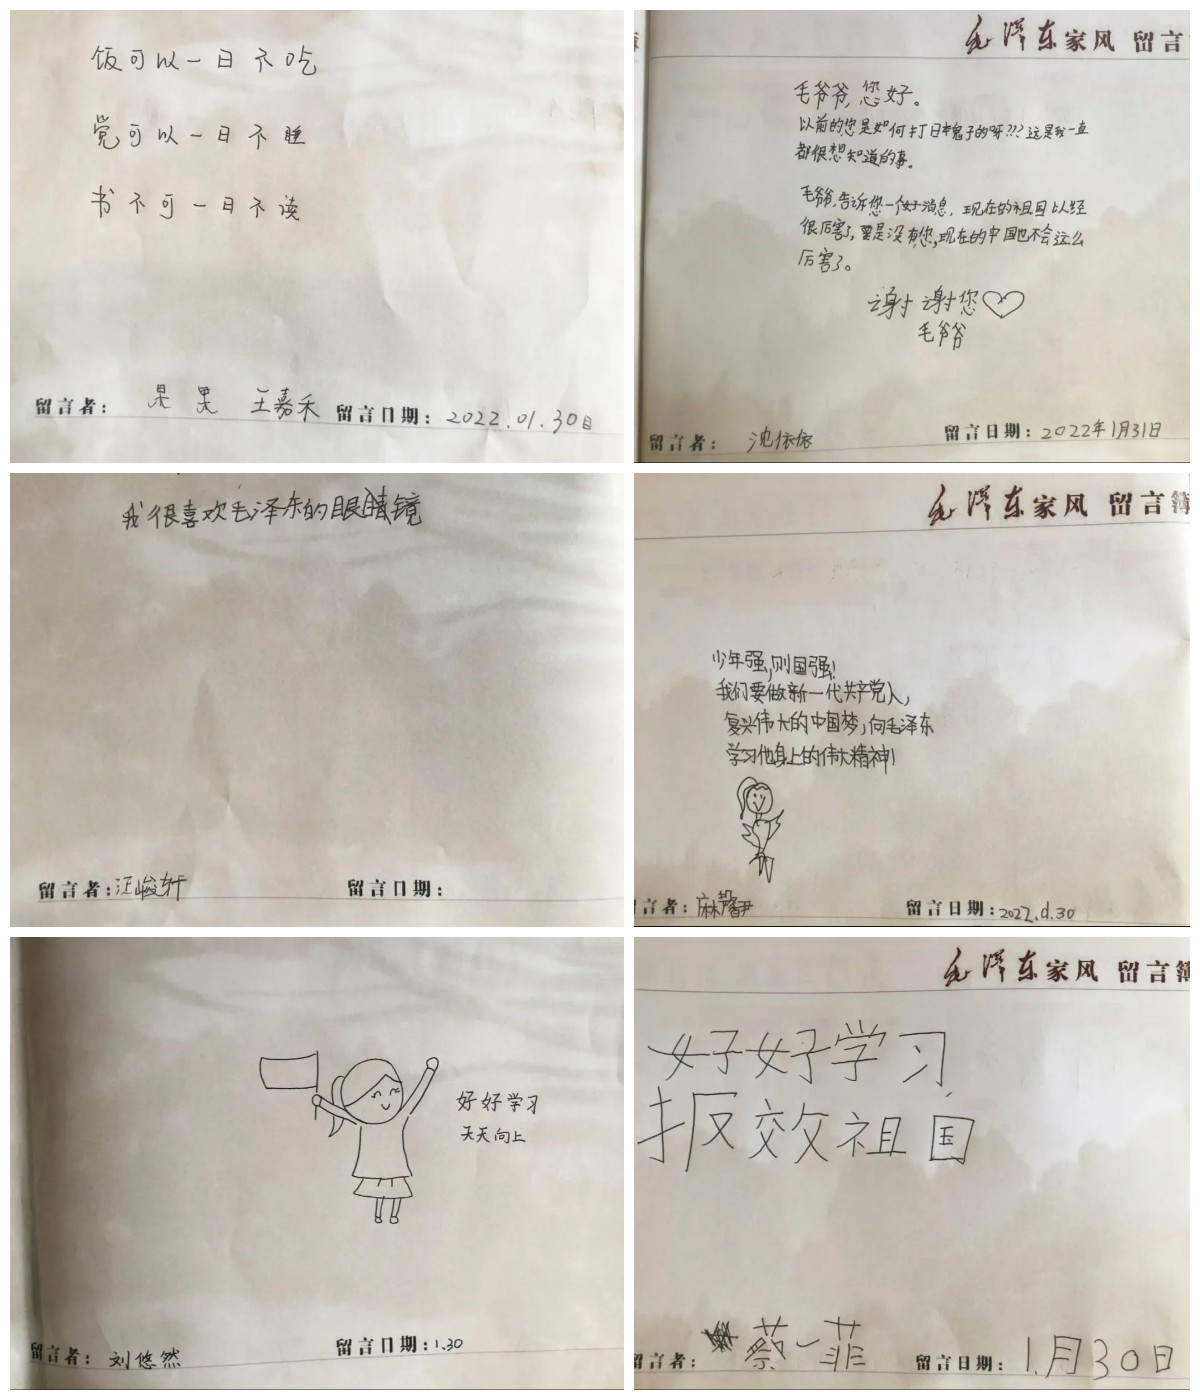 饭可以一日不吃
觉可以一日不睡
书不可一日不读
留言者: 果果 王嘉禾 留言日期: 2022.01.30日
毛泽东家风 留言
毛爷爷,您好。
以前的您是如何打日本鬼子的呀???这是我一直
都很想知道的事。
毛爷爷,告诉您一个好消息,现在的祖国以经
很厉害了,要是没有您,现在的中国也不会这么
厉害了。
谢谢您
毛爷爷
留言者: 沈依依 留言日期: 2022年1月31日
我很喜欢毛泽东的眼睛镜
留言者: 汪峻轩 留言日期:
毛泽东家风 留言簿
少年强,则国强!
我们要做新一代共产党人,
复兴伟大的中国梦,向毛泽东
学习他身上的伟大精神!
言者: 麻馨尹 留言日期: 2022.1.30
好好学习
天天向上
留言者: 刘悠然 留言日期: 1.30
毛泽东家风 留言簿
好好学习
报效祖国
言者: 蔡一菲 留言日期: 1月30日